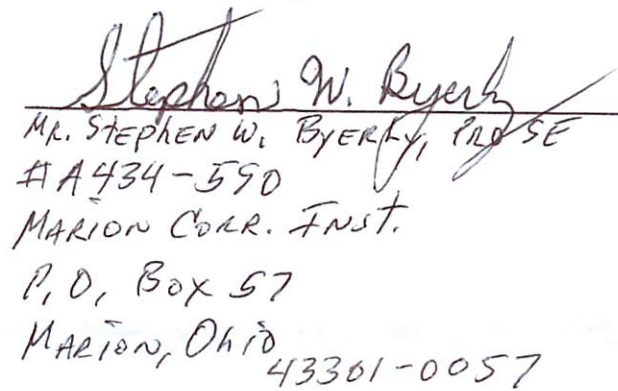 Stephen W. Byerly
MR. STEPHEN W. BYERLY, PRO SE
#A434-590
MARION CORR. INST.
P.O. BOX 57
MARION, OHIO
43301-0057